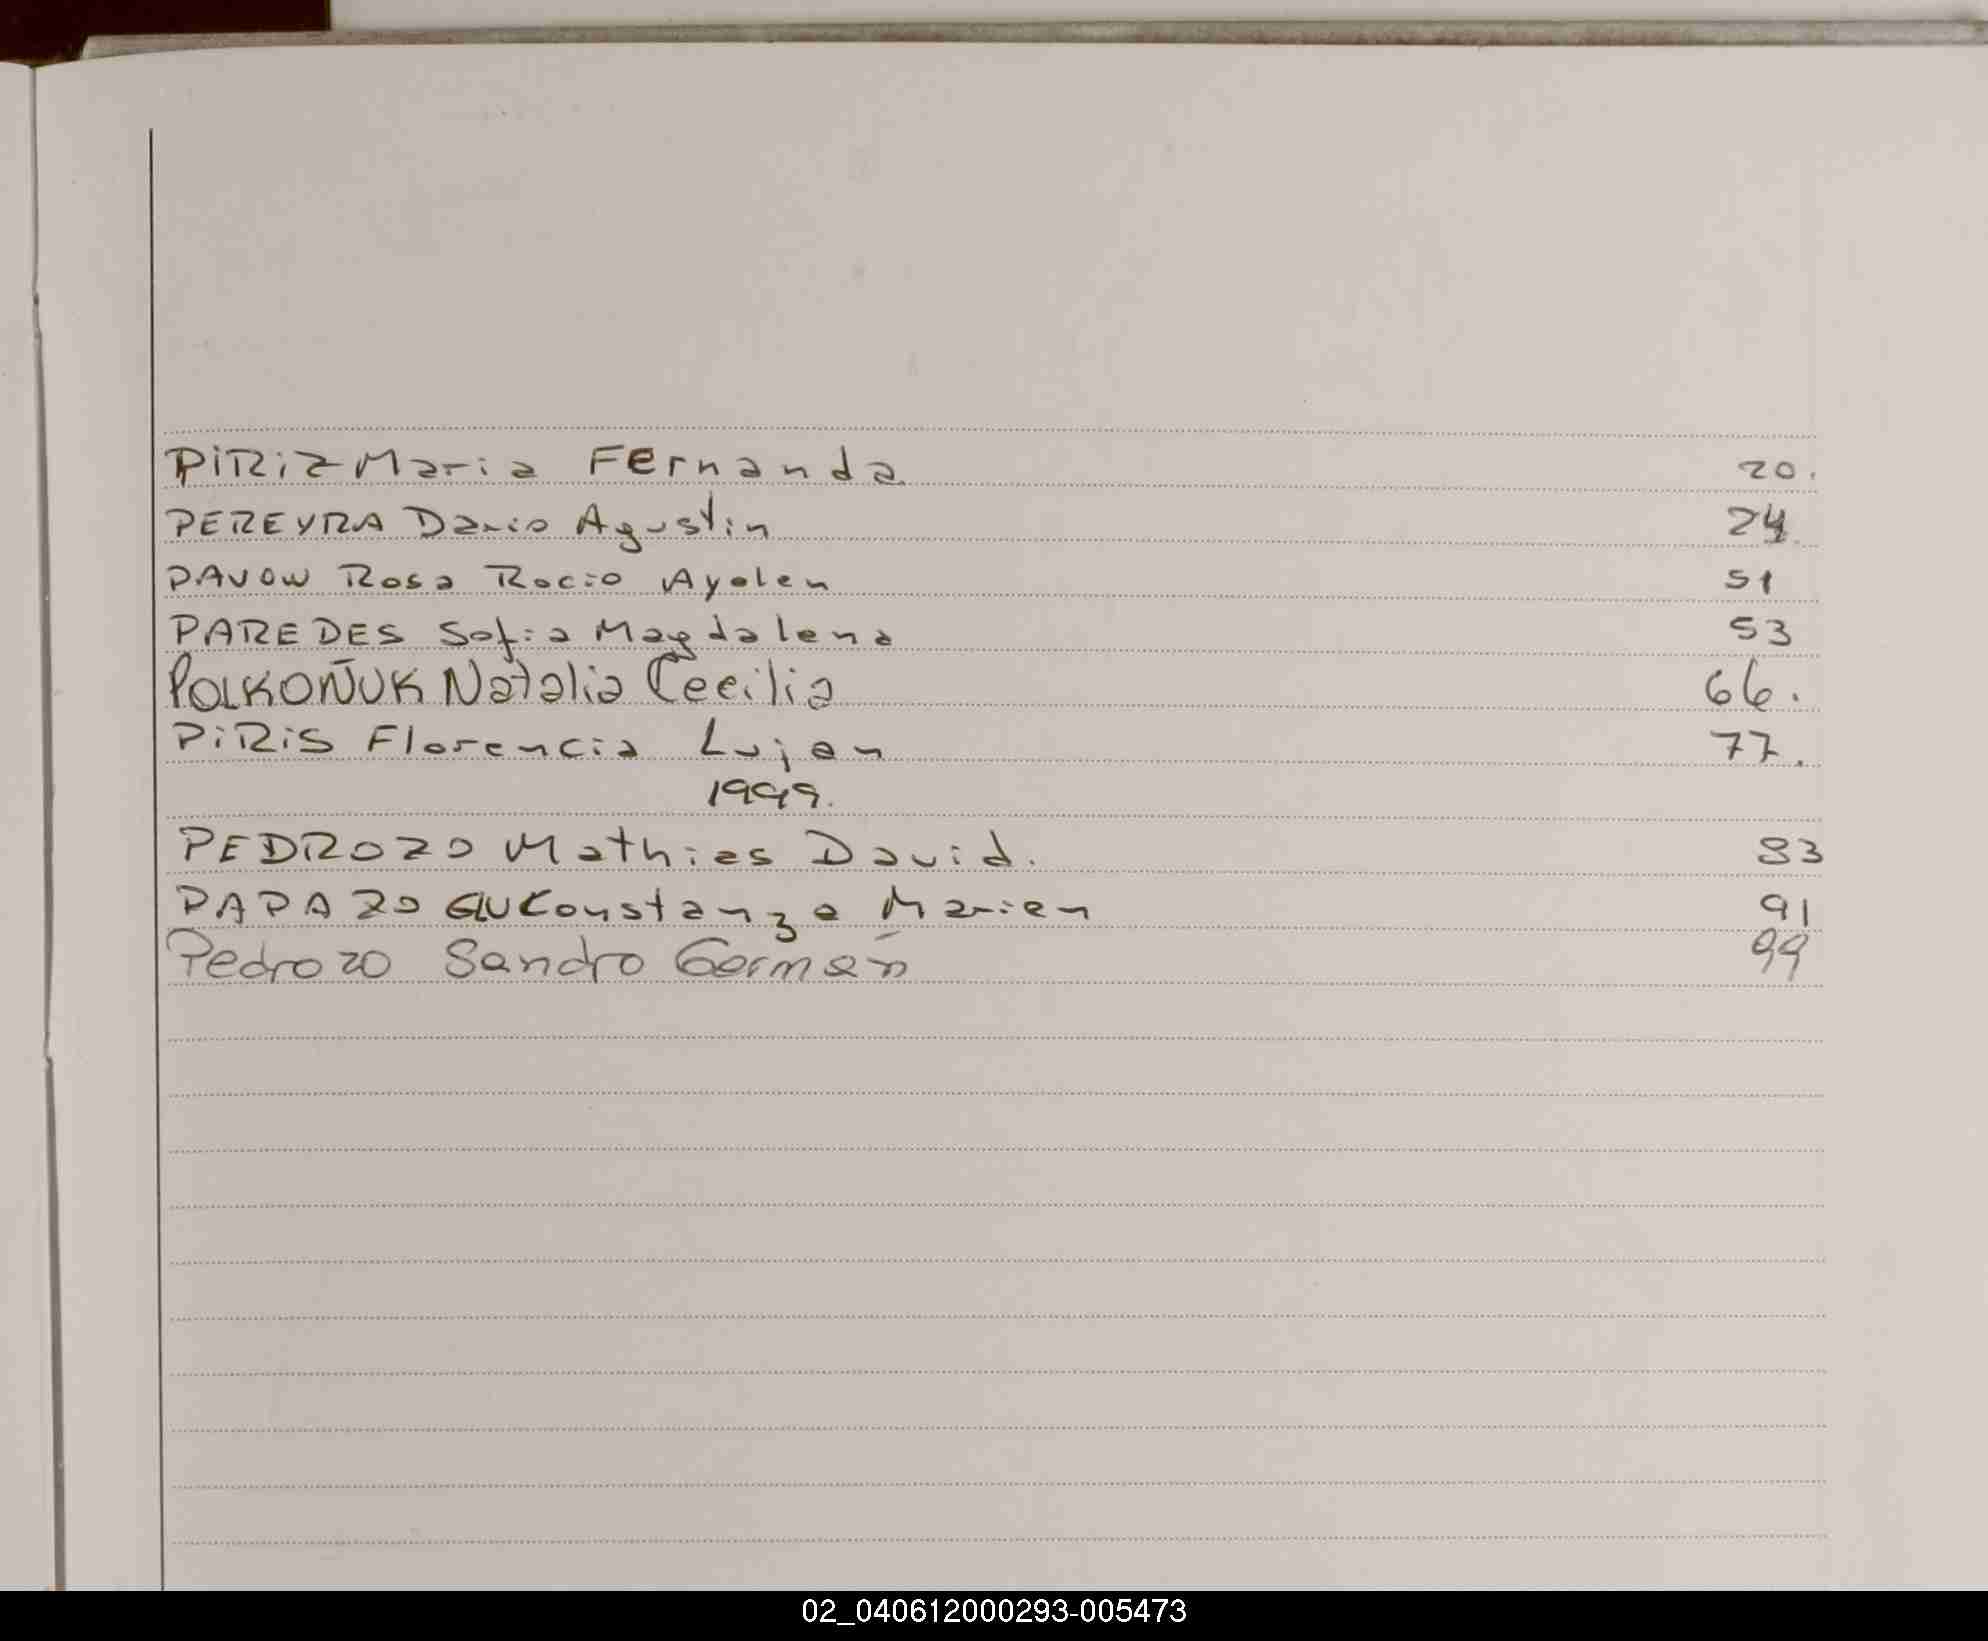 PIRIZ Maria Fernanda 20.
PEREYRA Dario Agustin 24.
PAVON Rosa Rocio Ayelen 51
PAREDES Sofia Magdalena 53
POLKOÑUK Natalia Cecilia 66.
PIRIS Florencia Lujan 77.
1999.
PEDROZO Mathias David. 83
PAPAZOGLU Constanza Marien 91
Pedrozo Sandro Germán 99
02_040612000293-005473